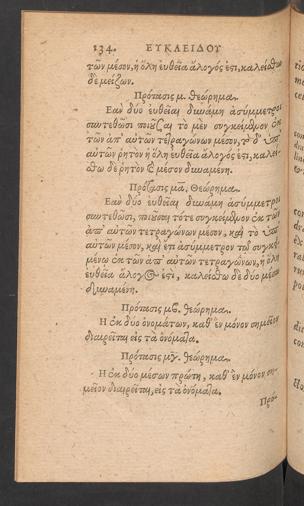 134. ΕΥΚΛΕΙΔΟΥ
των μέσον, ἡ ὅλη εὐθεῖα ἄλογός ἐστι, καλείσθω
δὲ μείζων.
Πρότασις μ. θεώρημα.
Εὰν δύο εὐθεῖαι δυνάμει ἀσύμμετροι
συντεθῶσι ποιοῦσαι τὸ μὲν συγκείμενον ἐκ
τῶν ἀπ' αὐτῶν τετραγώνων μέσον, τὸ δ' ὑπ'
αὐτῶν ῥητὸν ἡ ὅλη εὐθεῖα ἄλογός ἐστι, καλεί-
σθω δὲ ῥητὸν καὶ μέσον δυναμένη.
Πρότασις μα. Θεώρημα.
Εὰν δύο εὐθεῖαι δυνάμει ἀσύμμετροι
συντεθῶσι, ποιοῦσαι τότε συγκείμενον ἐκ τῶν
ἀπ' αὐτῶν τετραγώνων μέσον, καὶ τὸ ὑπ'
αὐτῶν μέσον, καὶ ἔτι ἀσύμμετρον τῷ συγκει-
μένῳ ἐκ τῶν ἀπ' αὐτῶν τετραγώνων, ἡ ὅλη
εὐθεῖα ἄλογος ἐστι, καλείσθω δὲ δύο μέσα
δυναμένη.
Πρότασις μβ. θεώρημα.
Η ἐκ δύο ὀνομάτων, καθ' ἓν μόνον σημεῖον
διαιρεῖται εἰς τὰ ὀνόματα.
Πρότασις μγ. θεώρημα.
Η ἐκ δύο μέσων πρώτη, καθ' ἓν μόνον ση-
μεῖον διαιρεῖται, εἰς τὰ ὀνόματα.
Πρό-